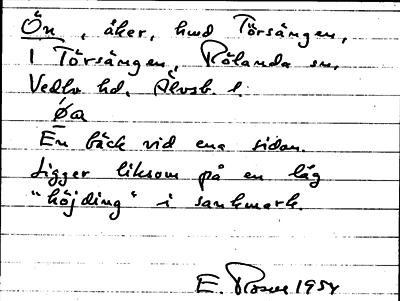 Ön, åker, hmd Törsången,
I Törsången, Rölanda sn,
Vedbo hd, Älvsb. l.
øa
En bäck vid ena sidan.
Ligger liksom på en låg
"höjding" i sankmark.
E. Rosell 1954